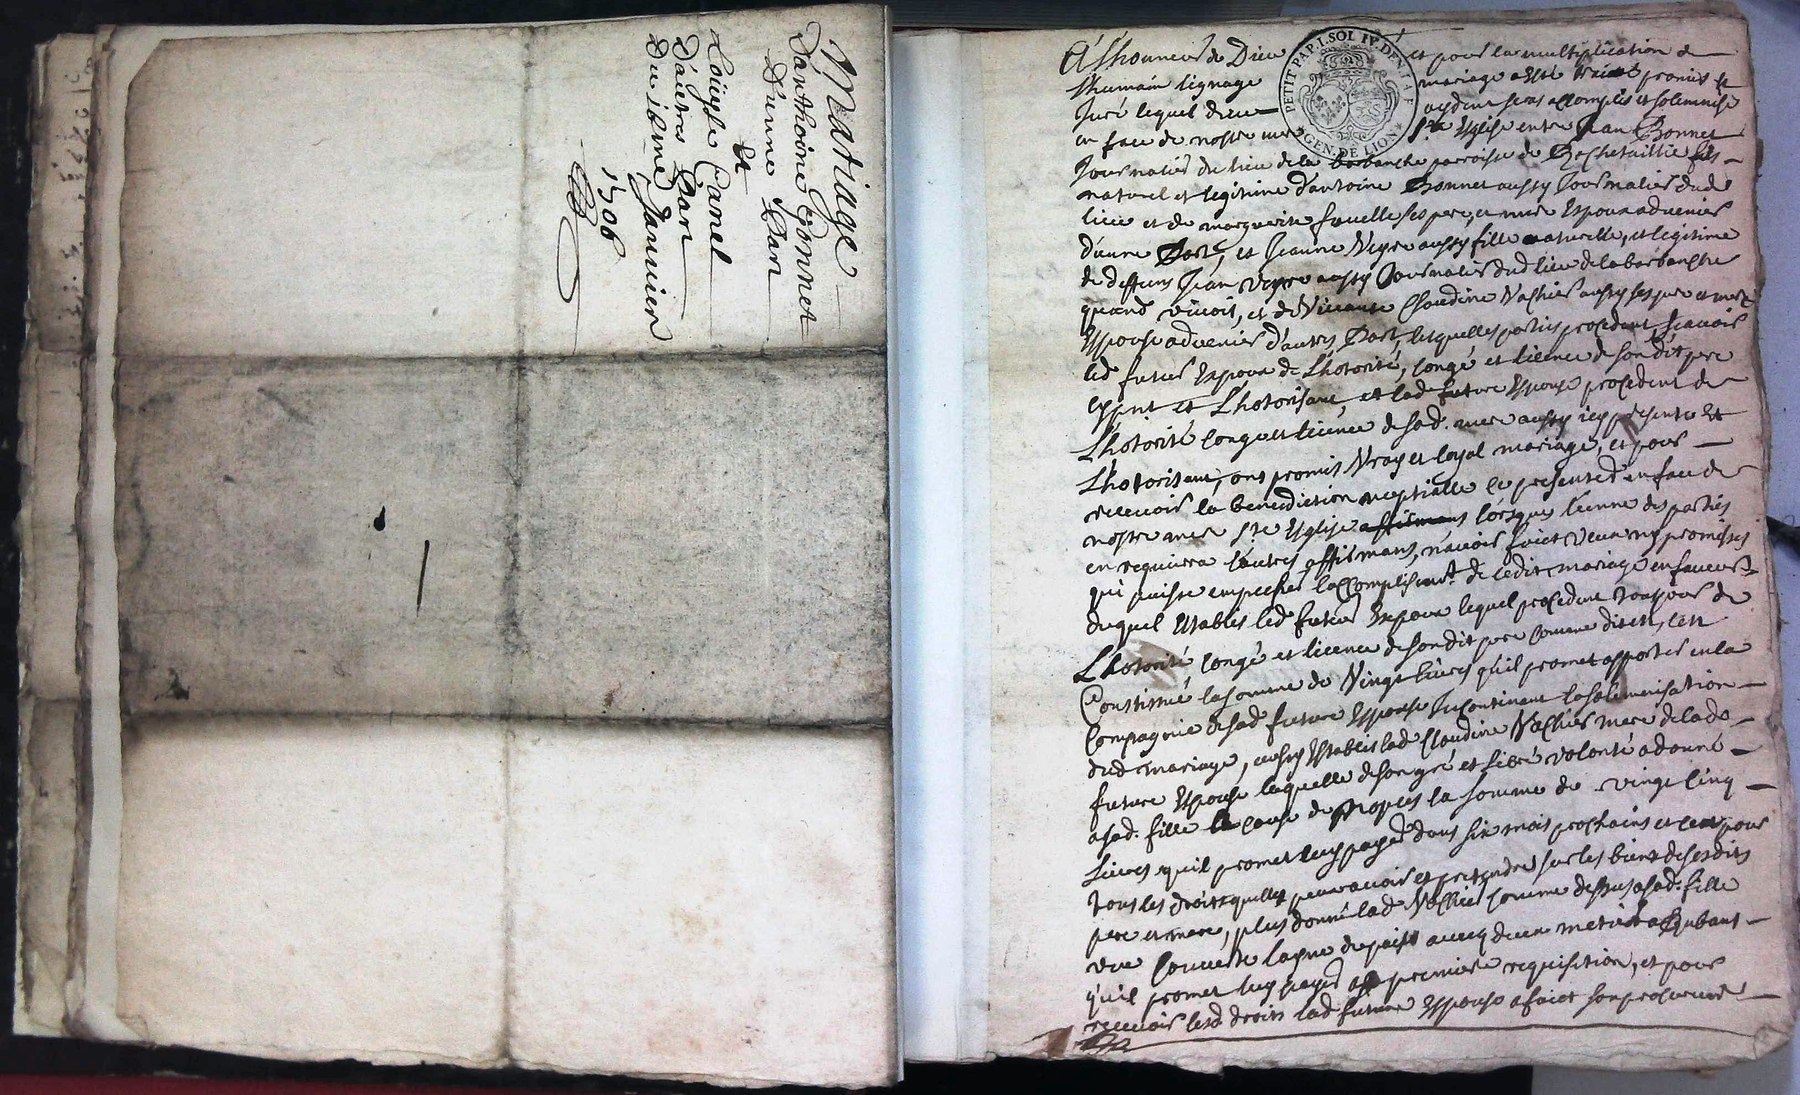 Mariage
D'anthoine Gonnet
D'unne Part
Et
Louise Canel
D'autres Part
Du 18me Janvier
1706
A L'honneur de Dieu et pour la multiplication de
l'humain lignage mariage a esté traicté promis et
Juré lequel dieu aydant sera accomplis et solemnisé
en face de nostre mere Ste Esglise entre Jean Bonnet
Journalier du lieu de la barbanche parroisse de Rochetaillie fils
naturel et legitime d'antoine Bonnet aussy Journalier dud
lieu et de marguerite fauelle ses pere, et mere Espoux advenir
d'unne Part, et Jeanne Veyre aussy fille naturelle, et legitime
de deffunt Jean veyre aussy Journalier dud lieu de la barbanche
quand vivoit, et de Vivante Claudine Vachier aussy ses pere et mere
Espouse advenir d'autres Part, lesquelles parties procedant scavoir
led futur Espoux de L'hotorité, congé et licence de son dit pere
cy pnt et L'hotorisant, et lad future Espouse procedent de
L'hotorité congé et licence de sad. mere aussy icy presente Et
L'hotorisant, ont promis Vray et loyal mariage, et pour
recevoir la benediction nuptialle ce presenter en face de
nostre mere Ste Esglise lorsque l'unne des parties
en requiera l'autres affirmans, n'avoir faict veux ny promisses
qui puisse empecher l'accomplissant. de ledit mariage en faveur
duquel Establis led futur Espoux lequel procedent toujours de
L'hotorité congé et licence de son dit pere comme dit est, c'est
Constitué la somme de Vingt livres qu'il promet apporter en la
Compagnie de sad future Espouse Incontinant la solemnisation
dud mariage, aussy Establis lad Claudine Vachier mere de lade
future Espouse laquelle de son gré et libre volonté a donné
a sad. fille la somme de vingt cinq
Livres qu'il promet luy payer dans six mois prochains et cest pour
tous les droits qu'elle peut avoir et pretendre sur les biens de sesdits
pere et mere, plus donne lad Vachier comme dessus a sad. fille
une Couverte layne de pais avecq d'un metier a Rubant
qu'il promet luy payer a premiere requisition, et pour
recevoir lesd droits lad future Espouse a faict son procureur
PETIT PAP. I. SOL IV. DEN. LA F.
GEN. DE LION